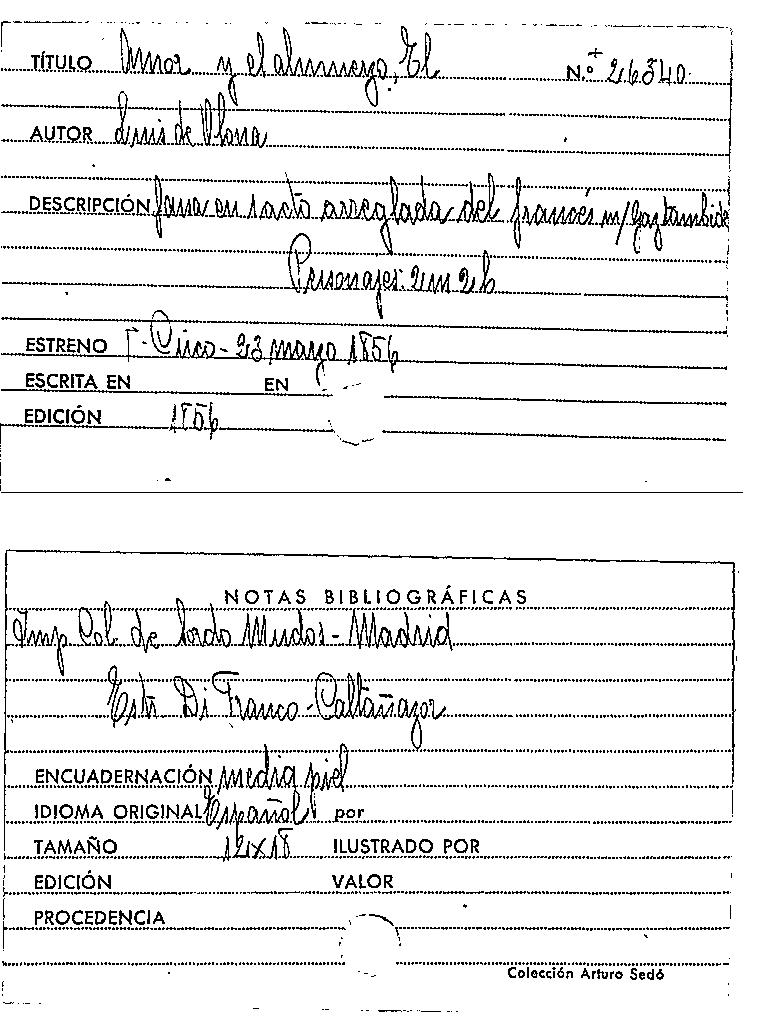 TÍTULO Amor y el almuerzo, El N.º 26340
AUTOR Luis de Olona
DESCRIPCIÓN farsa en 1 acto arreglada del francés m/ Gaztambide
Personajes: 2 m 2 h
ESTRENO T- Circo - 23 marzo 1856
ESCRITA EN EN
EDICIÓN 1856
NOTAS BIBLIOGRÁFICAS
Imp Col. de Sordo Mudos - Madrid
Estr Di Franco - Caltañazor
ENCUADERNACIÓN media piel
IDIOMA ORIGINAL Español por
TAMAÑO 12x18 ILUSTRADO POR
EDICIÓN VALOR
PROCEDENCIA
Colección Arturo Sedó